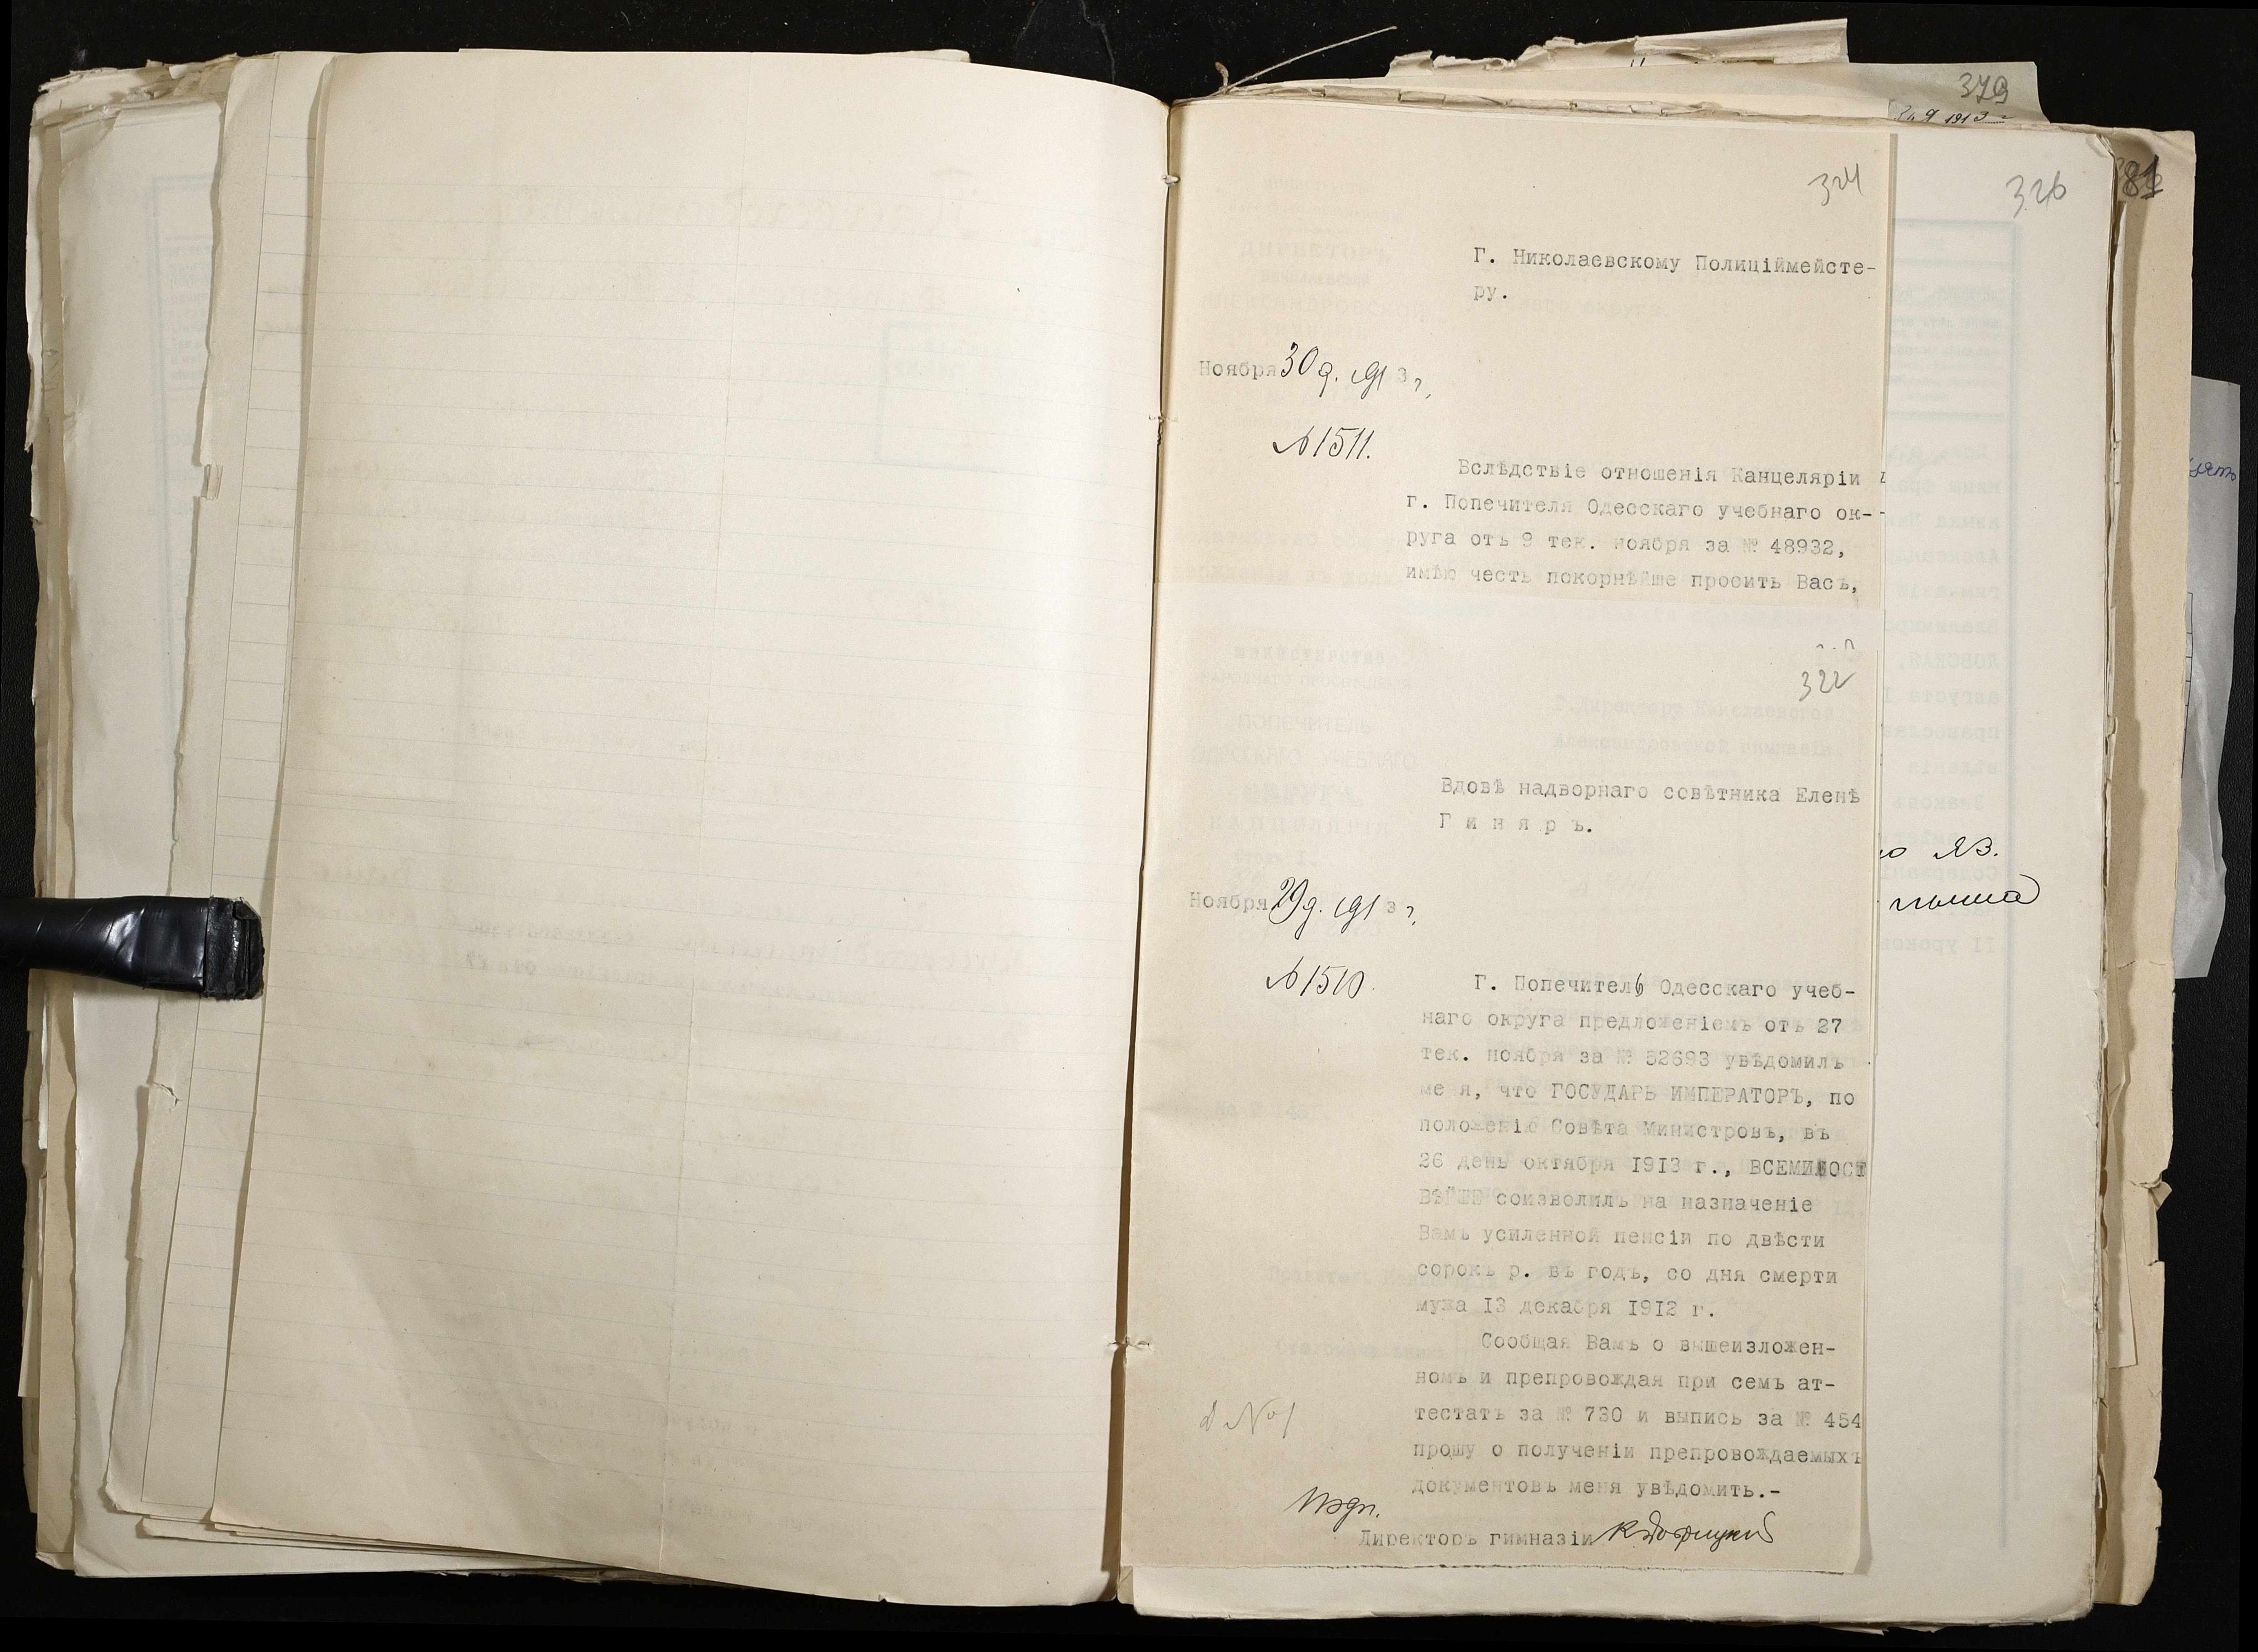 379
324
326
381
Г. Николаевскому Полиціймейсте-
ру.
Ноября 30 д. 1913 г.
№ 1511.
Вслѣдствіе отношенія Канцеляріи
г. Попечителя Одесскаго учебнаго ок-
руга отъ 9 тек. ноября за № 48932,
имѣю честь покорнѣйше просить Васъ,
322
Вдовѣ надворнаго совѣтника Еленѣ
Г и н я р ъ.
Ноября 29 д. 1913 г.
№ 1510.
Г. Попечитель Одесскаго учеб-
наго округа предложеніемъ отъ 27
тек. ноября за № 52693 увѣдомилъ
меня, что ГОСУДАРЬ ИМПЕРАТОРЪ, по
положенію Совѣта Министровъ, въ
26 день октября 1913 г., ВСЕМИЛОСТ
ВѢЙШЕ соизволилъ на назначеніе
Вамъ усиленной пенсіи по двѣсти
сорокъ р. въ годъ, со дня смерти
мужа 13 декабря 1912 г.
Сообщая Вамъ о вышеизложен-
номъ и препровождая при семъ ат-
тестатъ за № 730 и выпись за № 454
прошу о полученіи препровождаемыхъ
документовъ меня увѣдомить.-
Д №1
Директоръ гимназіи